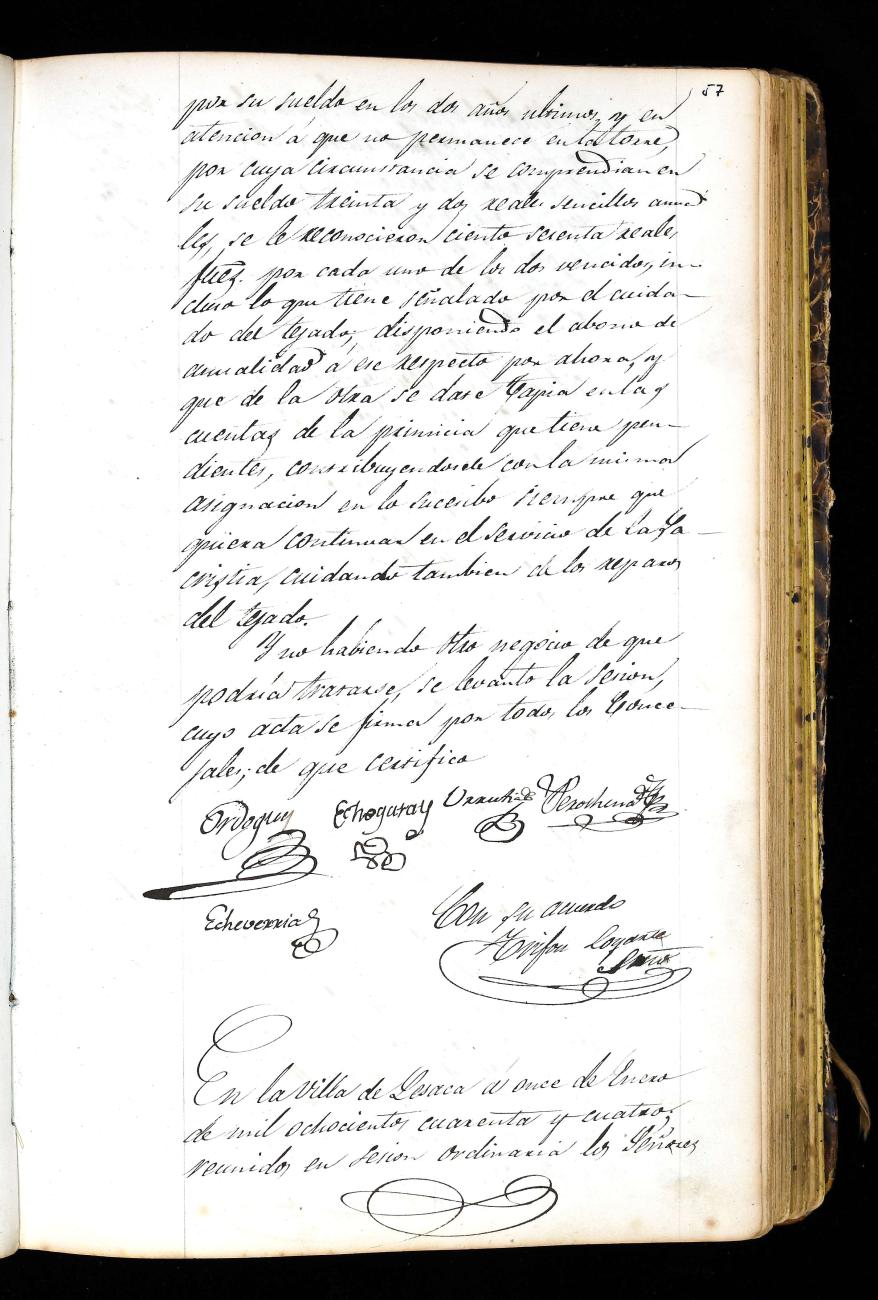 57
por su sueldo en los dos años ultimos, y en
atencion á que no permanece en la torre,
por cuya circunstancia se comprendian en
su sueldo treinta y dos reales sencillos anua
les, se le reconocieron ciento sesenta reales
ftes. por cada uno de los dos vencidos, in-
cluso lo que tiene señalado por el cuida-
do del tejado; disponiendo el abono de
anualidad á ese respecto por ahora, y
que de la otra se date Tapia en las
cuentas de la primicia que tiene pen-
dientes, contribuyendosele con la misma
asignacion en lo sucesibo siempre que
quiera continuar en el servicio de la Sa-
cristia, cuidando tambien de los reparos
del tejado.
Y no habiendo otro negocio de que
podria tratarse, se levantó la sesion,
cuyo acta se firma por todos los Conce-
jales; de que certifico
Ordoqui Echegaray Urrutia Perochena
Echeverria
Con su acuerdo
Trifon Loyarte
Srio
En la Villa de Lesaca á once de Enero
de mil ochocientos cuarenta y cuatro,
reunidos en sesion ordinaria los Señores